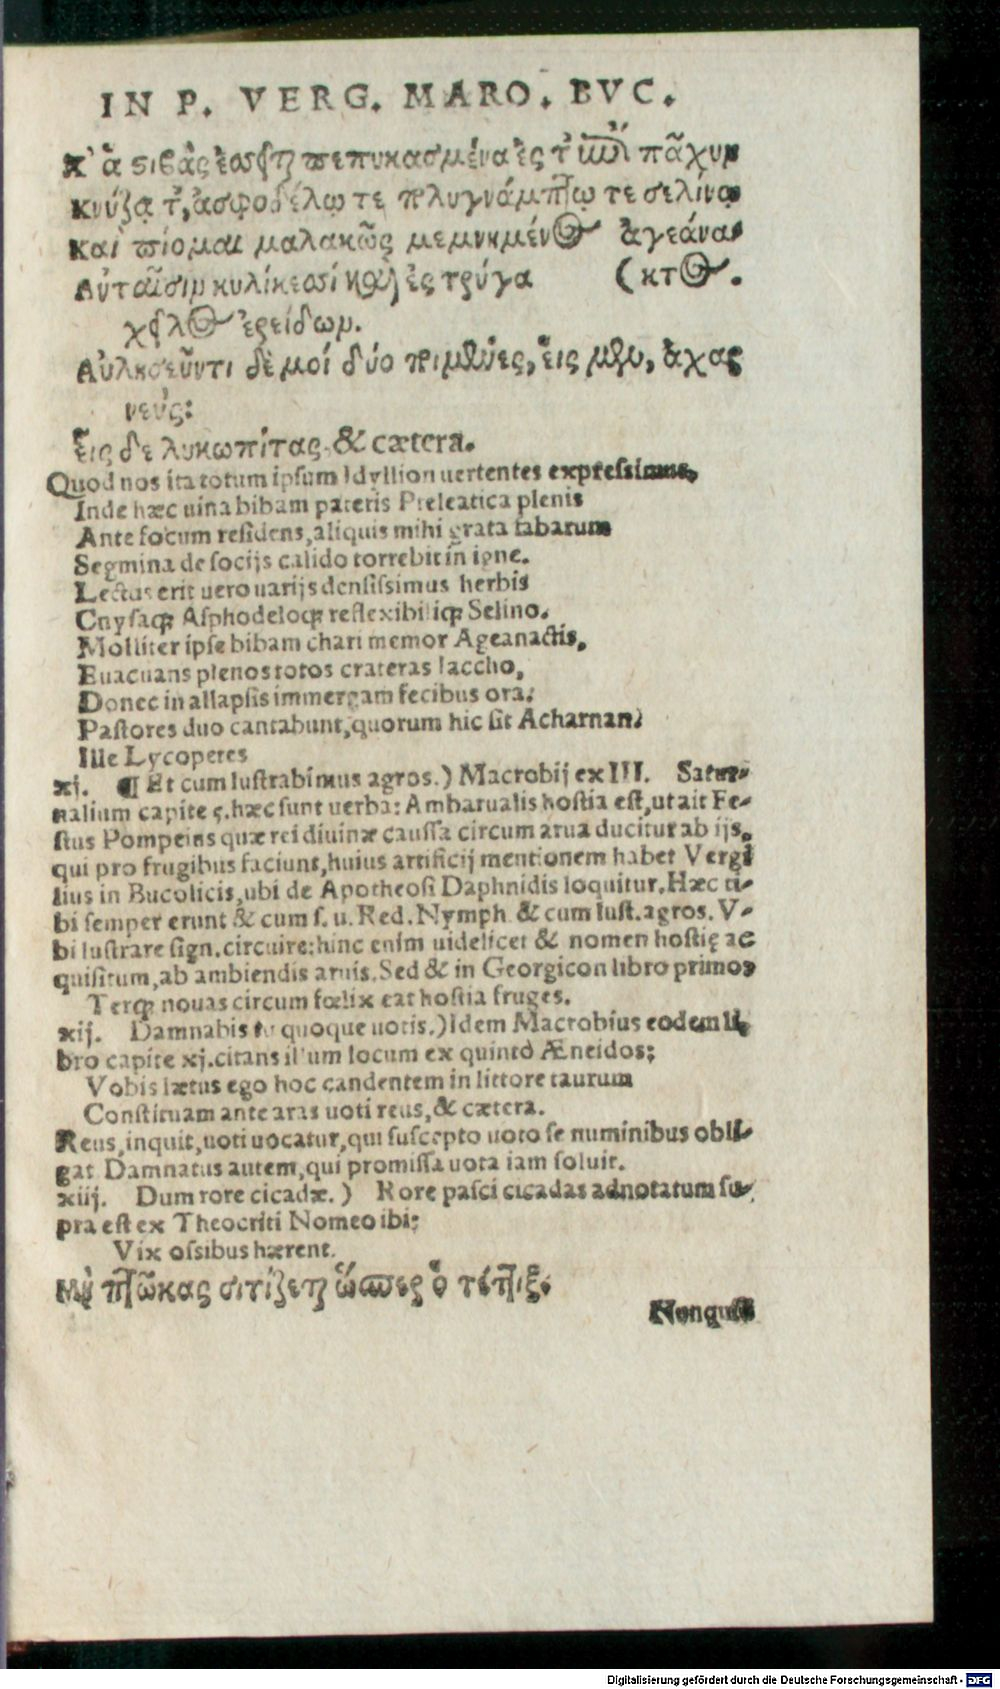 IN P. VERG. MARO. BVC.
χ' ἁ στιβὰς ἐσσεῖται πεπυκασμένα ἐς τ' ἐπὶ πᾶχυν
κνύζᾳ τ', ἀσφοδέλῳ τε πολυγνάμπτῳ τε σελίνῳ
Καὶ πίομαι μαλακῶς μεμνημένος ἀγεάνα-
Αὐταῖσιν κυλίκεσσι καὶ ἐς τρύγα (κτος.
χεῖλος ἐρείδων.
Αὐλησεῦντι δὲ μοί δύο ποιμένες, εἷς μὲν, ἀχαρ
νεύς:
εἷς δε λυκωπίτας. & cætera.
Quod nos ita totum ipsum Idyllion uertentes expressimus,
Inde hæc uina bibam pateris Pteleatica plenis
Ante focum residens, aliquis mihi grata fabarum
Segmina de socijs calido torrebit in igne.
Lectus erit uero uarijs densissimus herbis
Cnysaq; Asphodeloq; reflexibiliq; Selino.
Molliter ipse bibam chari memor Ageanactis,
Euacuans plenos totos crateras Iaccho,
Donec in allapsis immergam fecibus ora.
Pastores duo cantabunt, quorum hic sit Acharnan.
Ille Lycoperes
xj. ¶ Et cum lustrabimus agros.) Macrobij ex III. Satur-
nalium capite 5. hæc sunt uerba: Ambarualis hostia est, ut ait Fe-
stus Pompeius quæ rei diuinæ caussa circum arua ducitur ab ijs,
qui pro frugibus faciunt, huius artificij mentionem habet Vergi
lius in Bucolicis, ubi de Apotheosi Daphnidis loquitur. Hæc ti-
bi semper erunt & cum s. u. Red. Nymph. & cum lust. agros. V-
bi lustrare sign. circuire: hinc enim uidelicet & nomen hostię ac
quisitum, ab ambiendis aruis. Sed & in Georgicon libro primo,
Terq; nouas circum fœlix eat hostia fruges.
xij. Damnabis tu quoque uotis.) Idem Macrobius eodem li-
bro capite xj. citans illum locum ex quinto Æneidos;
Vobis lætus ego hoc candentem in littore taurum
Constituam ante aras uoti reus, & cætera.
Reus, inquit, uoti uocatur, qui suscepto uoto se numinibus obli-
gat. Damnatus autem, qui promissa uota iam soluit.
xiij. Dum rore cicadæ.) Rore pasci cicadas adnotatum su-
pra est ex Theocriti Nomeo ibi:
Vix ossibus hærent.
Μὴ πρῶκας σιτίζεται ὥσπερ ὁ τέττιξ.
Nonquid
Digitalisierung gefördert durch die Deutsche Forschungsgemeinschaft - DFG